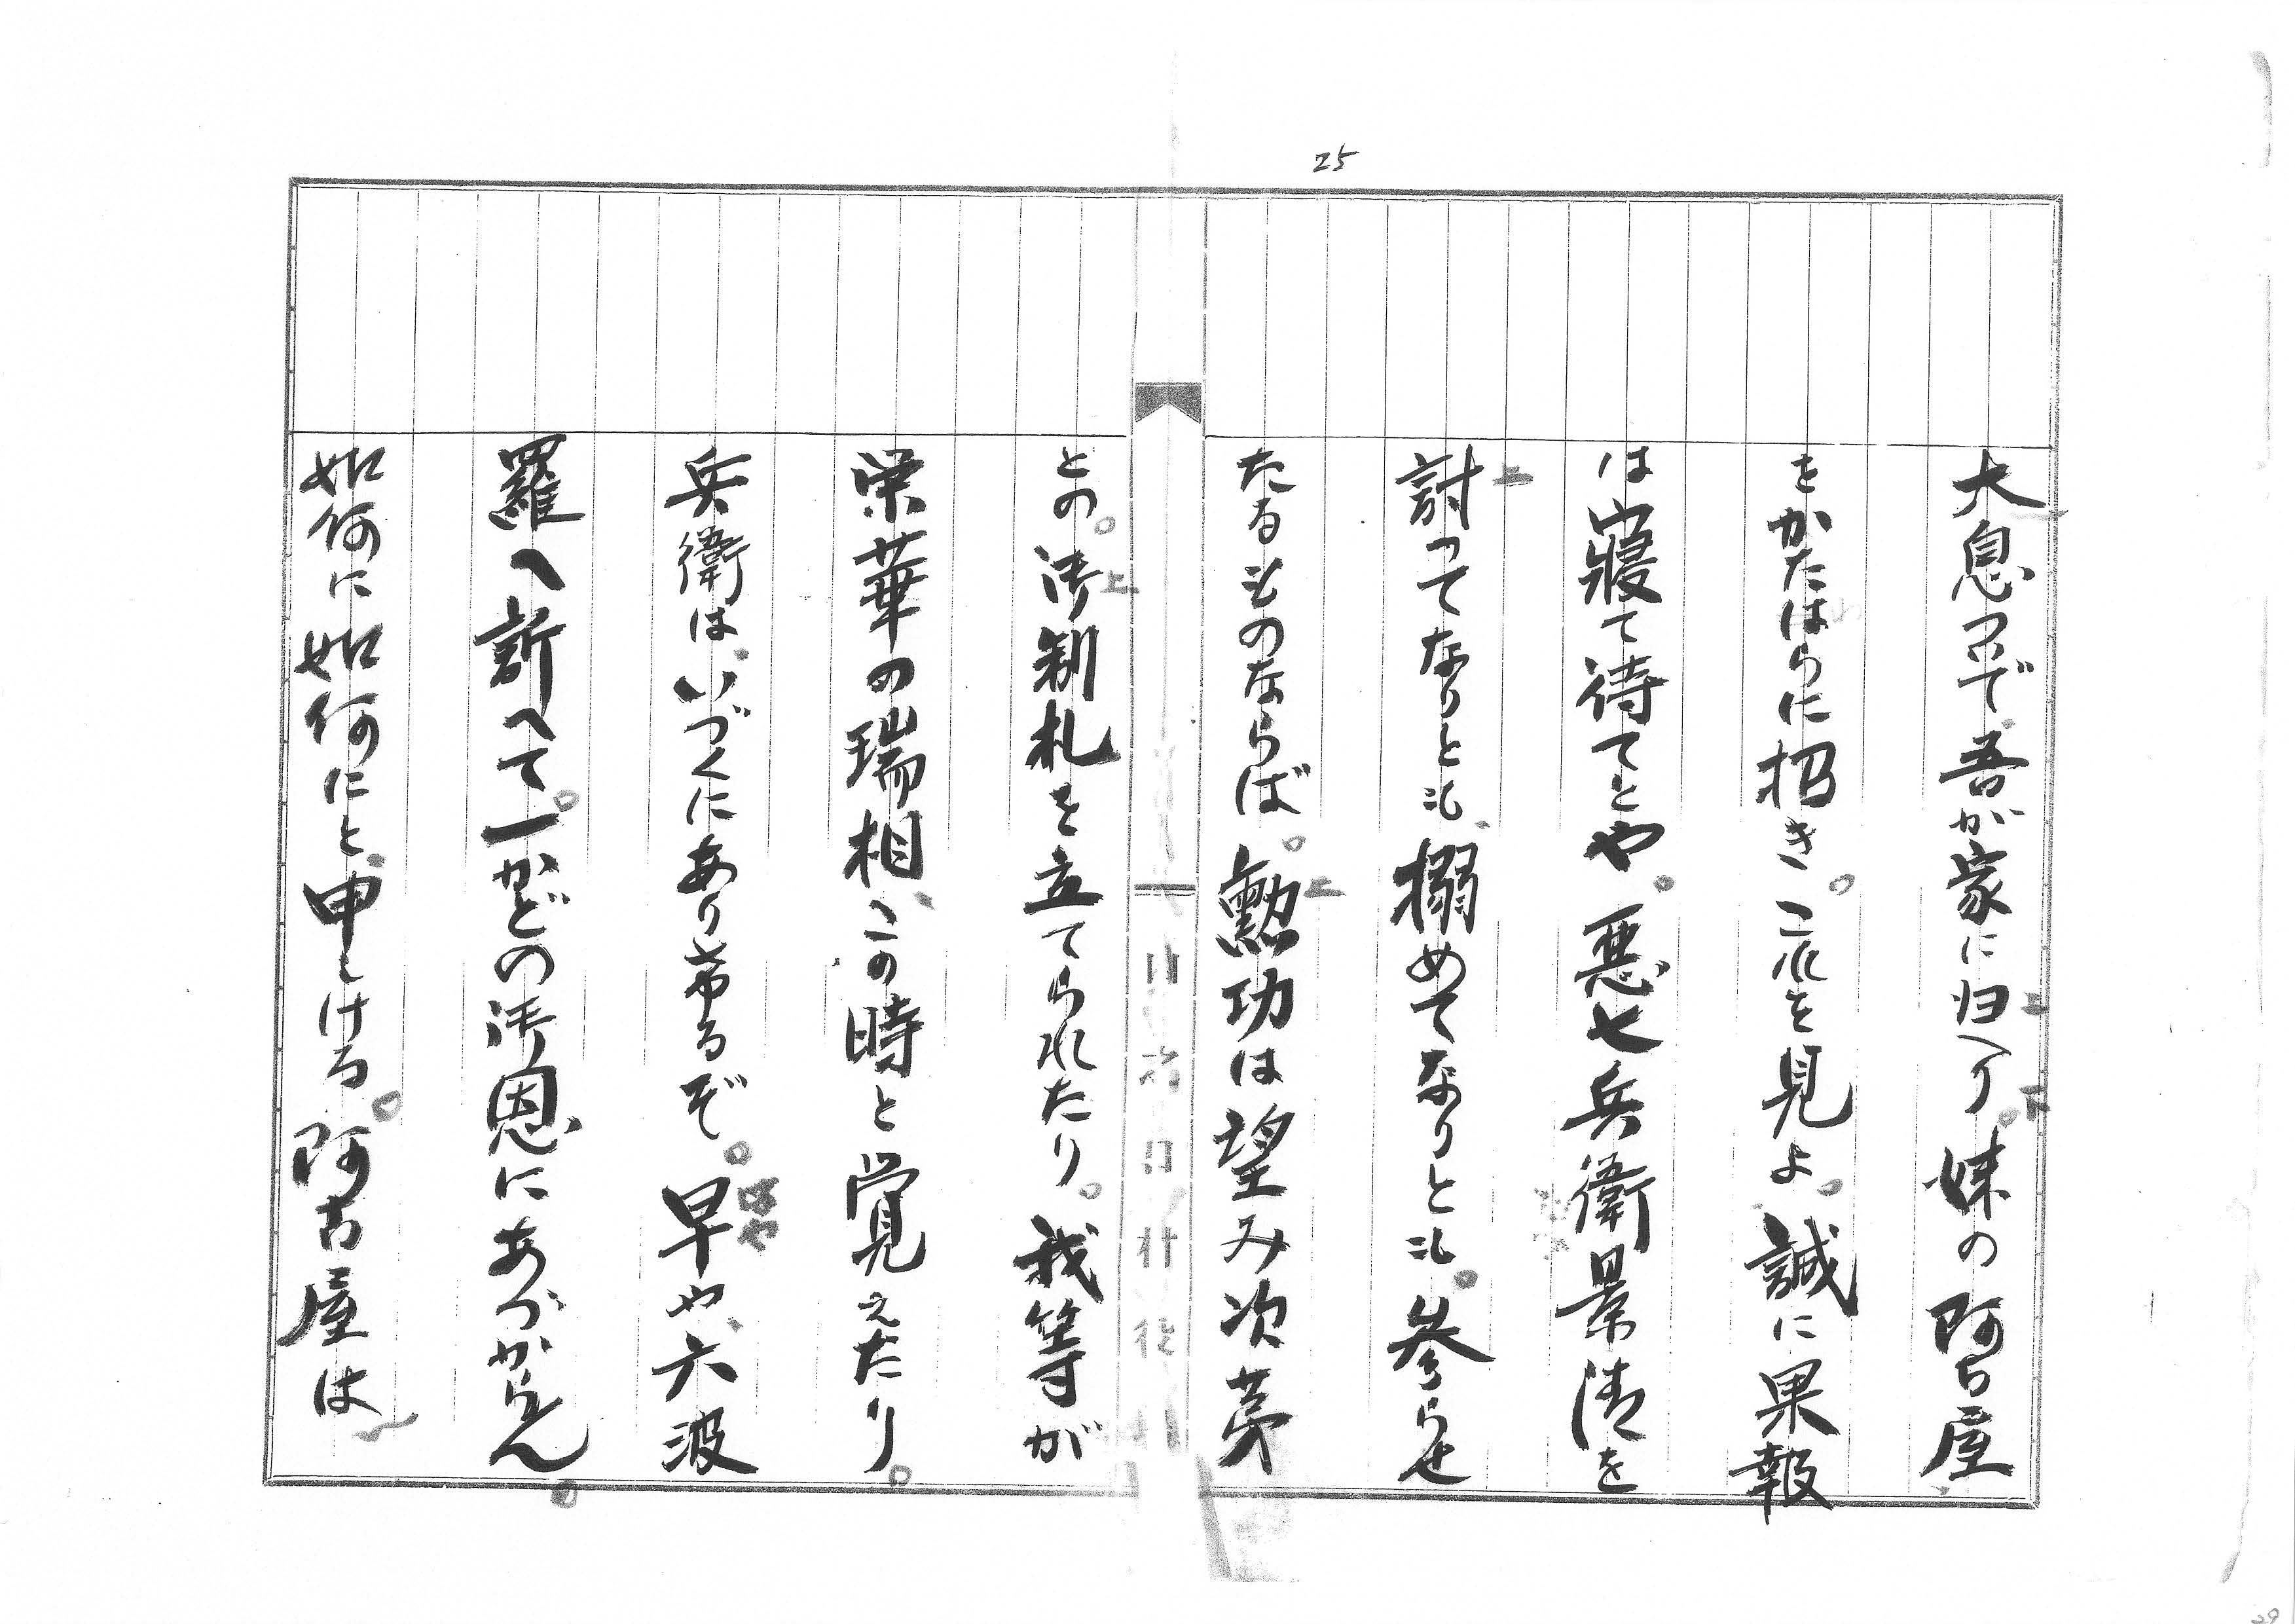 25
大息ついで吾が家に归へり。妹の阿古屋
をかたはらに招き。これを見よ。誠に果報
は寝て待てとや。悪七兵衛景清を
討つてなりとも、搦めてなりとも。参らせ
たるものならば。勲功は望み次第
との。御制札を立てられたり。我等が
栄華の瑞相、この時と覚えたり。
兵衛は、いづくにあり希るぞ。早や、六波
羅へ訴へて。一かどの御恩にあづからん。
如何に如何にと、申しける。阿古屋は